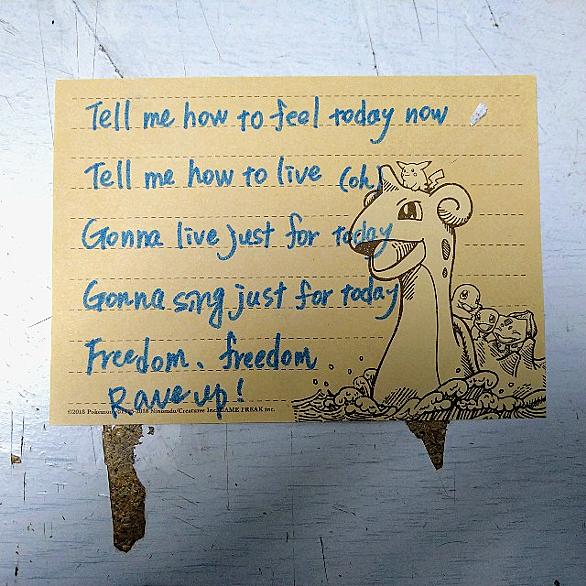 Tell me how to feel today now
Tell me how to live (oh)
Gonna live just for today
Gonna sing just for today
Freedom. freedom
Rave up!
©2018 Pokémon. ©1995-2018 Nintendo/Creatures Inc./GAME FREAK inc.